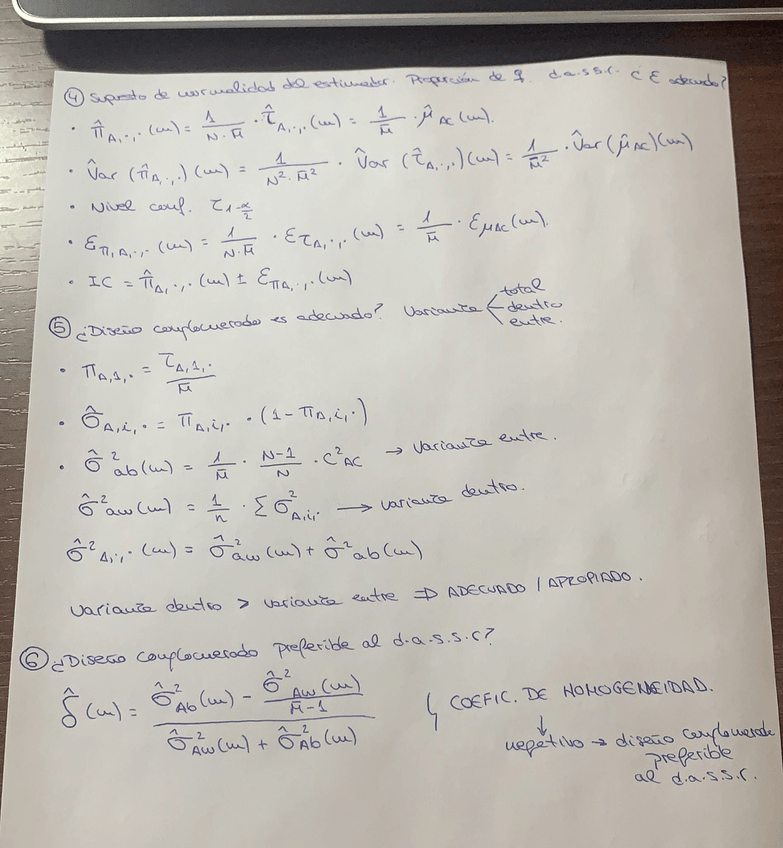 ④ Supuesto de normalidad del estimador. Proporción de q. d.a.s.s.r. ¿ε adecuado?
• π̂A,·,·(m) = 1/(N·M̄) · τ̂A,·,·(m) = 1/M̄ · μ̂AC(m).
• V̂ar(π̂A,·,·)(m) = 1/(N²·M̄²) · V̂ar(τ̂A,·,·)(m) = 1/M̄² · V̂ar(μ̂AC)(m)
• Nivel conf. τ1-α/2
• επ,A,·,·(m) = 1/(N·M̄) · ετA,·,·(m) = 1/M̄ · εμAC(m).
• IC = π̂A,·,·(m) ± επA,·,·(m)
⑤ ¿Diseño conglomerado es adecuado? Varianza < total
dentro
entre.
• πA,1,· = τA,1,·/M̄
• σ̂A,i,· = πA,i,· · (1-πA,i,·)
• σ̂²ab(m) = 1/M̄ · (N-1)/N · C²AC → varianza entre.
σ̂²aw(m) = 1/n · Σσ²A,i,· → varianza dentro.
σ̂²A,·,·(m) = σ̂²aw(m) + σ̂²ab(m)
Varianza dentro > varianza entre ⇒ ADECUADO / APROPIADO.
⑥ ¿Diseño conglomerado preferible al d.a.s.s.r?
δ̂(m) = (σ̂²Ab(m) - σ̂²Aw(m)/(M̄-1)) / (σ̂²Aw(m) + σ̂²Ab(m))
COEFIC. DE HOMOGENEIDAD.
↓
negativo → diseño conglomerado
preferible
al d.a.s.s.r.